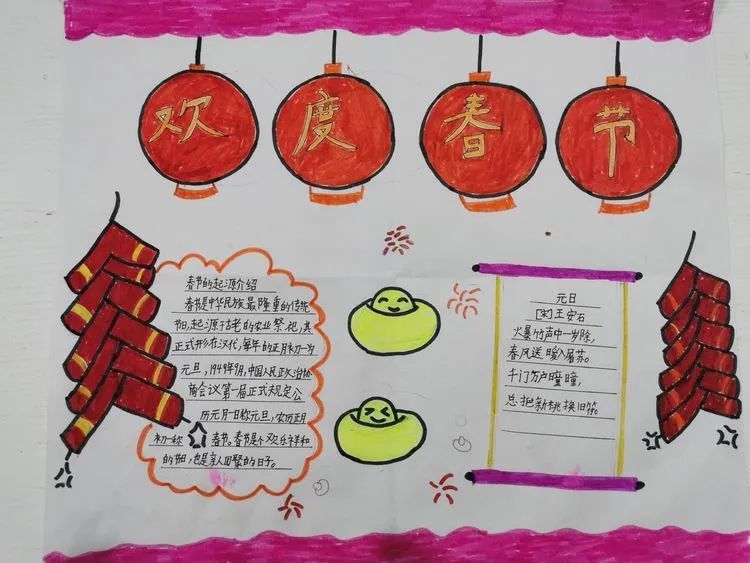 欢度春节
春节的起源介绍
春节是中华民族最隆重的传统
节日,起源于古老的农业祭祀,其
正式形在汉代,每年的正月初一为
元旦,1949年9月,中国人民政治协
商会议第一届正式规定公
历元月一日称元旦,农历正月
初一称春节,春节是个欢乐祥和
的节日,也是亲人团聚的日子。
元日
[宋]王安石
火暴竹声中一岁除,
春风送暖入屠苏。
千门万户曈曈,
总把新桃换旧符。